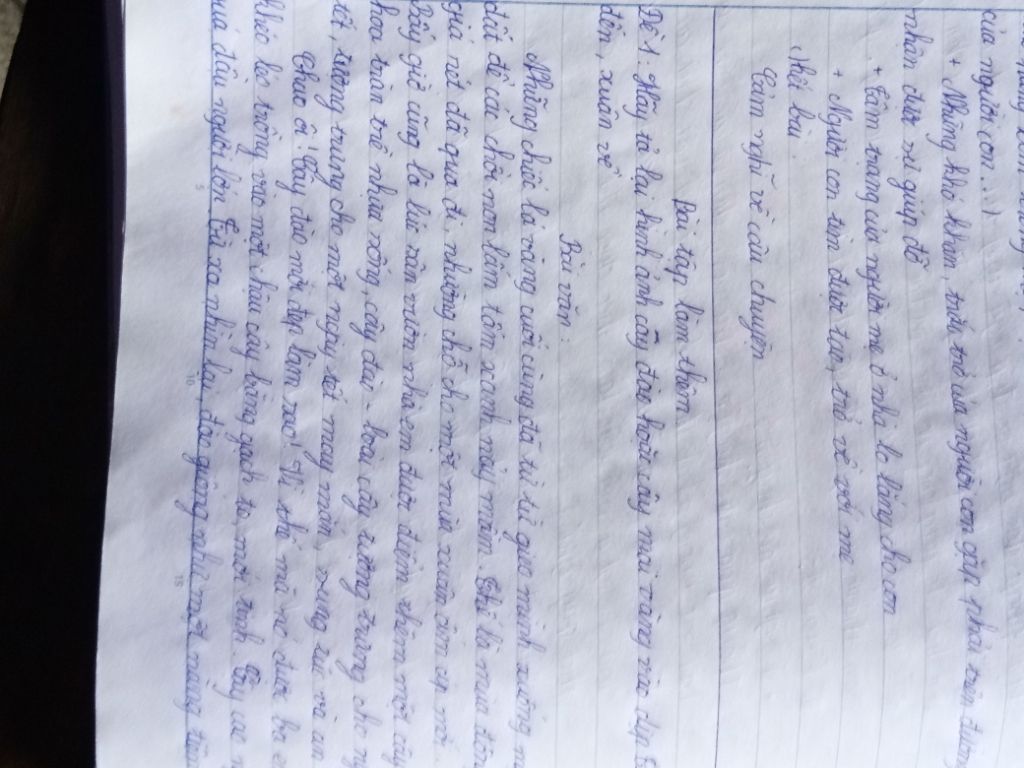 của người con...)
+ Những khó khăn, trắc trở của người con gặp phải trên đường
nhân dứt sự giúp đỡ
+ Tâm trạng của người mẹ ở nhà lo lắng cho con
+ Người con tìm được tạp, trở về với mẹ
Kết bài
Cảm nghĩ về câu chuyện
Bài tập làm thêm
Đề 1: Hãy tả lại hình ảnh cây đào hoặc cây mai vàng vào dịp
đến, xuân về
Bài văn:
Những chiếc lá vàng cuối cùng đã từ từ gieo mình xuống
đất để các chồi non lấm tấm xanh nảy mầm. Thế là mùa đông
giá rét đã qua đi, nhường chỗ cho một mùa xuân ấm áp mới.
Bây giờ cũng là lúc sân vườn nhà em được điểm thêm một cây
hoa tràn trề nhựa sống, cây đào - loài cây tượng trưng cho
tết, tượng trưng cho một ngày tết may mắn, sung túc và an
Chao ôi! Cây đào mới đẹp làm sao! Vì thế mà nó được ba
khéo léo trồng vào một chậu cây bằng gạch to, mới tinh. Cây cao
quá đầu người lớn. Từ xa nhìn lại, đào giống như một nàng tiên